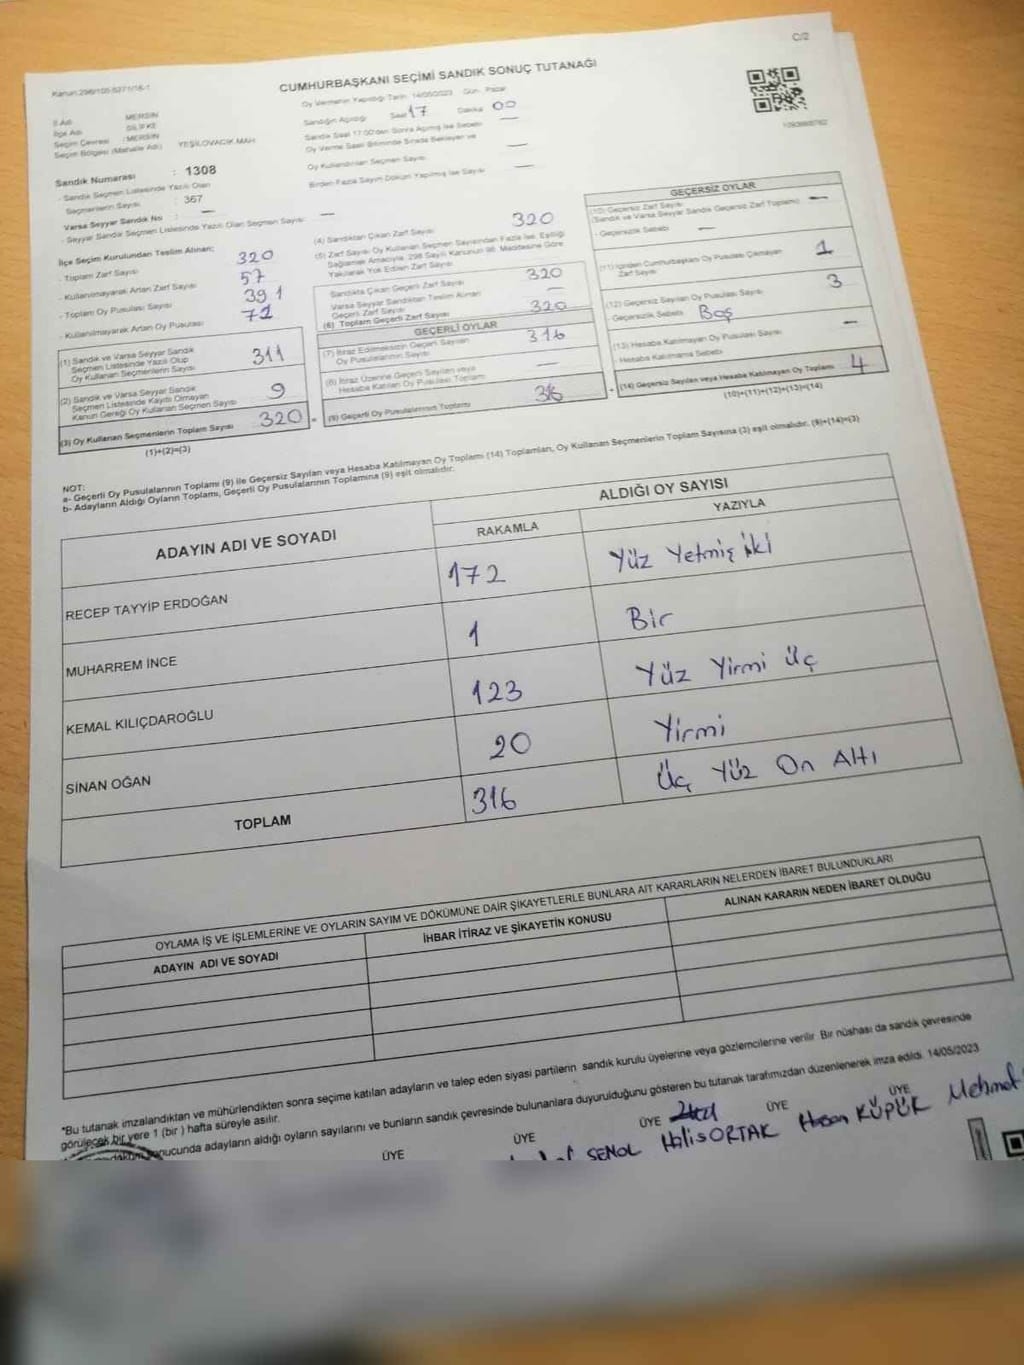 C/2
Kanun:298/105-6271/16-1
CUMHURBAŞKANI SEÇİMİ SANDIK SONUÇ TUTANAĞI
Oy Vermenin Yapıldığı Tarih: 14/05/2023 Gün: Pazar
İl Adı MERSİN
İlçe Adı SİLİFKE
Seçim Çevresi : MERSİN
Seçim Bölgesi (Mahalle Adı) YEŞİLOVACIK MAH
Sandığın Açıldığı Saat 17 Dakika 00
Sandık Saat 17:00'den Sonra Açılmış İse Sebebi —
Oy Verme Saati Bitiminde Sırada Bekleyen ve
Oy Kullandırılan Seçmen Sayısı —
Birden Fazla Sayım Döküm Yapılmış İse Sayısı —
Sandık Numarası : 1308
- Sandık Seçmen Listesinde Yazılı Olan
Seçmenlerin Sayısı : 367
Varsa Seyyar Sandık No : —
- Seyyar Sandık Seçmen Listesinde Yazılı Olan Seçmen Sayısı —
İlçe Seçim Kurulundan Teslim Alınan;
- Toplam Zarf Sayısı 320
- Kullanılmayarak Artan Zarf Sayısı 57
- Toplam Oy Pusulası Sayısı 391
- Kullanılmayarak Artan Oy Pusulası 72
(1) Sandık ve Varsa Seyyar Sandık
Seçmen Listesinde Yazılı Olup
Oy Kullanan Seçmenlerin Sayısı 311
(2) Sandık ve Varsa Seyyar Sandık
Seçmen Listesinde Kayıtlı Olmayan
Kanun Gereği Oy Kullanan Seçmen Sayısı 9
(3) Oy Kullanan Seçmenlerin Toplam Sayısı 320
(1)+(2)=(3)
(4) Sandıktan Çıkan Zarf Sayısı 320
(5) Zarf Sayısı Oy Kullanan Seçmen Sayısından Fazla İse, Eşitliği
Sağlamak Amacıyla, 298 Sayılı Kanunun 98. Maddesine Göre
Yakılarak Yok Edilen Zarf Sayısı
Sandıkta Çıkan Geçerli Zarf Sayısı 320
Varsa Seyyar Sandıktan Teslim Alınan
Geçerli Zarf Sayısı —
(6) Toplam Geçerli Zarf Sayısı 320
GEÇERLİ OYLAR
(7) İtiraz Edilmeksizin Geçerli Sayılan
Oy Pusulalarının Sayısı 316
(8) İtiraz Üzerine Geçerli Sayılan veya
Hesaba Katılan Oy Pusulası Toplamı —
(9) Geçerli Oy Pusulalarının Toplamı 316
GEÇERSİZ OYLAR
(10) Geçersiz Zarf Sayısı
(Sandık ve Varsa Seyyar Sandık Geçersiz Zarf Toplamı) —
- Geçersizlik Sebebi —
(11) İçinden Cumhurbaşkanı Oy Pusulası Çıkmayan
Zarf Sayısı 1
(12) Geçersiz Sayılan Oy Pusulası Sayısı 3
- Geçersizlik Sebebi Boş
(13) Hesaba Katılmayan Oy Pusulası Sayısı —
- Hesaba Katılmama Sebebi
(14) Geçersiz Sayılan veya Hesaba Katılmayan Oy Toplamı 4
(10)+(11)+(12)+(13)=(14)
NOT:
a- Geçerli Oy Pusulalarının Toplamı (9) ile Geçersiz Sayılan veya Hesaba Katılmayan Oy Toplamı (14) Toplamları, Oy Kullanan Seçmenlerin Toplam Sayısına (3) eşit olmalıdır. (9)+(14)=(3)
b- Adayların Aldığı Oyların Toplamı, Geçerli Oy Pusulalarının Toplamına (9) eşit olmalıdır.
ADAYIN ADI VE SOYADI
ALDIĞI OY SAYISI
RAKAMLA YAZIYLA
RECEP TAYYİP ERDOĞAN 172 Yüz Yetmiş iki
MUHARREM İNCE 1 Bir
KEMAL KILIÇDAROĞLU 123 Yüz Yirmi Üç
SİNAN OĞAN 20 Yirmi
TOPLAM 316 Üç Yüz On Altı
OYLAMA İŞ VE İŞLEMLERİNE VE OYLARIN SAYIM VE DÖKÜMÜNE DAİR ŞİKAYETLERLE BUNLARA AİT KARARLARIN NELERDEN İBARET BULUNDUKLARI
ADAYIN ADI VE SOYADI İHBAR İTİRAZ VE ŞİKAYETİN KONUSU ALINAN KARARIN NEDEN İBARET OLDUĞU
*Bu tutanak imzalandıktan ve mühürlendikten sonra seçime katılan adayların ve talep eden siyasi partilerin sandık kurulu üyelerine veya gözlemcilerine verilir. Bir nüshası da sandık çevresinde
görülecek bir yere 1 (bir) hafta süreyle asılır.
sonucunda adayların aldığı oyların sayılarını ve bunların sandık çevresinde bulunanlara duyurulduğunu gösteren bu tutanak tarafımızdan düzenlenerek imza edildi. 14/05/2023
ÜYE ÜYE ÜYE ÜYE ÜYE
ŞENOL Halis ORTAK Hasan KÜPÜK Mehmet